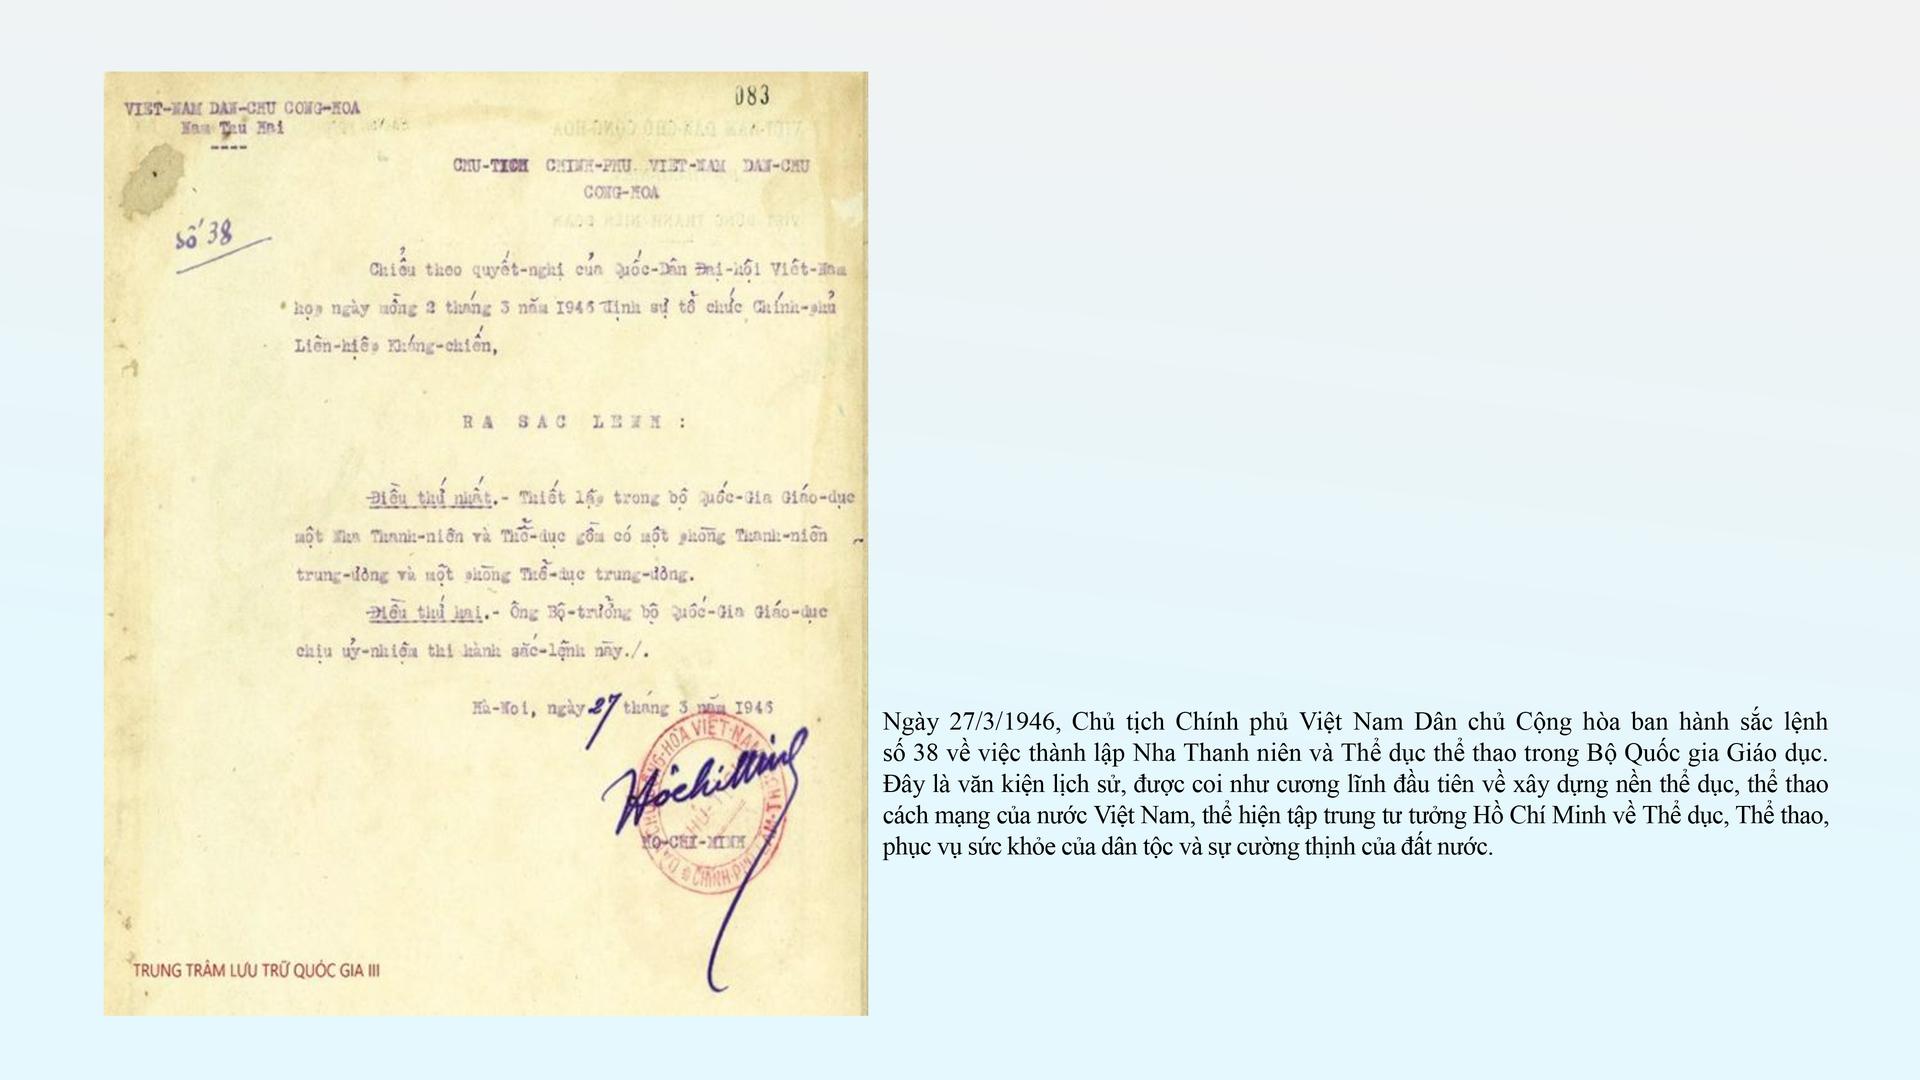 083
VIET-NAM DAN-CHU CONG-HOA
Nam Thu Hai
----
CHU-TICH CHINH-PHU VIET-NAM DAN-CHU
CONG-HOA
Số 38
Chiểu theo quyết-nghị của Quốc-Dân Đại-hội Việt-Nam
họp ngày mồng 2 tháng 3 năm 1946 định sự tổ chức Chính-phủ
Liên-hiệp Kháng-chiến,
RA SAC LENH :
Điều thứ nhất.- Thiết lập trong bộ Quốc-Gia Giáo-dục
một Nha Thanh-niên và Thể-dục gồm có một phòng Thanh-niên
trung-ương và một phòng Thể-dục trung-ương.
Điều thứ hai.- Ông Bộ-trưởng bộ Quốc-Gia Giáo-dục
chịu uỷ-nhiệm thi hành sắc-lệnh này./.
Hà-Noi, ngày 27 tháng 3 năm 1946
Hồ chí Minh
HO-CHI-MINH
TRUNG TRÂM LƯU TRỮ QUỐC GIA III
Ngày 27/3/1946, Chủ tịch Chính phủ Việt Nam Dân chủ Cộng hòa ban hành sắc lệnh
số 38 về việc thành lập Nha Thanh niên và Thể dục thể thao trong Bộ Quốc gia Giáo dục.
Đây là văn kiện lịch sử, được coi như cương lĩnh đầu tiên về xây dựng nền thể dục, thể thao
cách mạng của nước Việt Nam, thể hiện tập trung tư tưởng Hồ Chí Minh về Thể dục, Thể thao,
phục vụ sức khỏe của dân tộc và sự cường thịnh của đất nước.